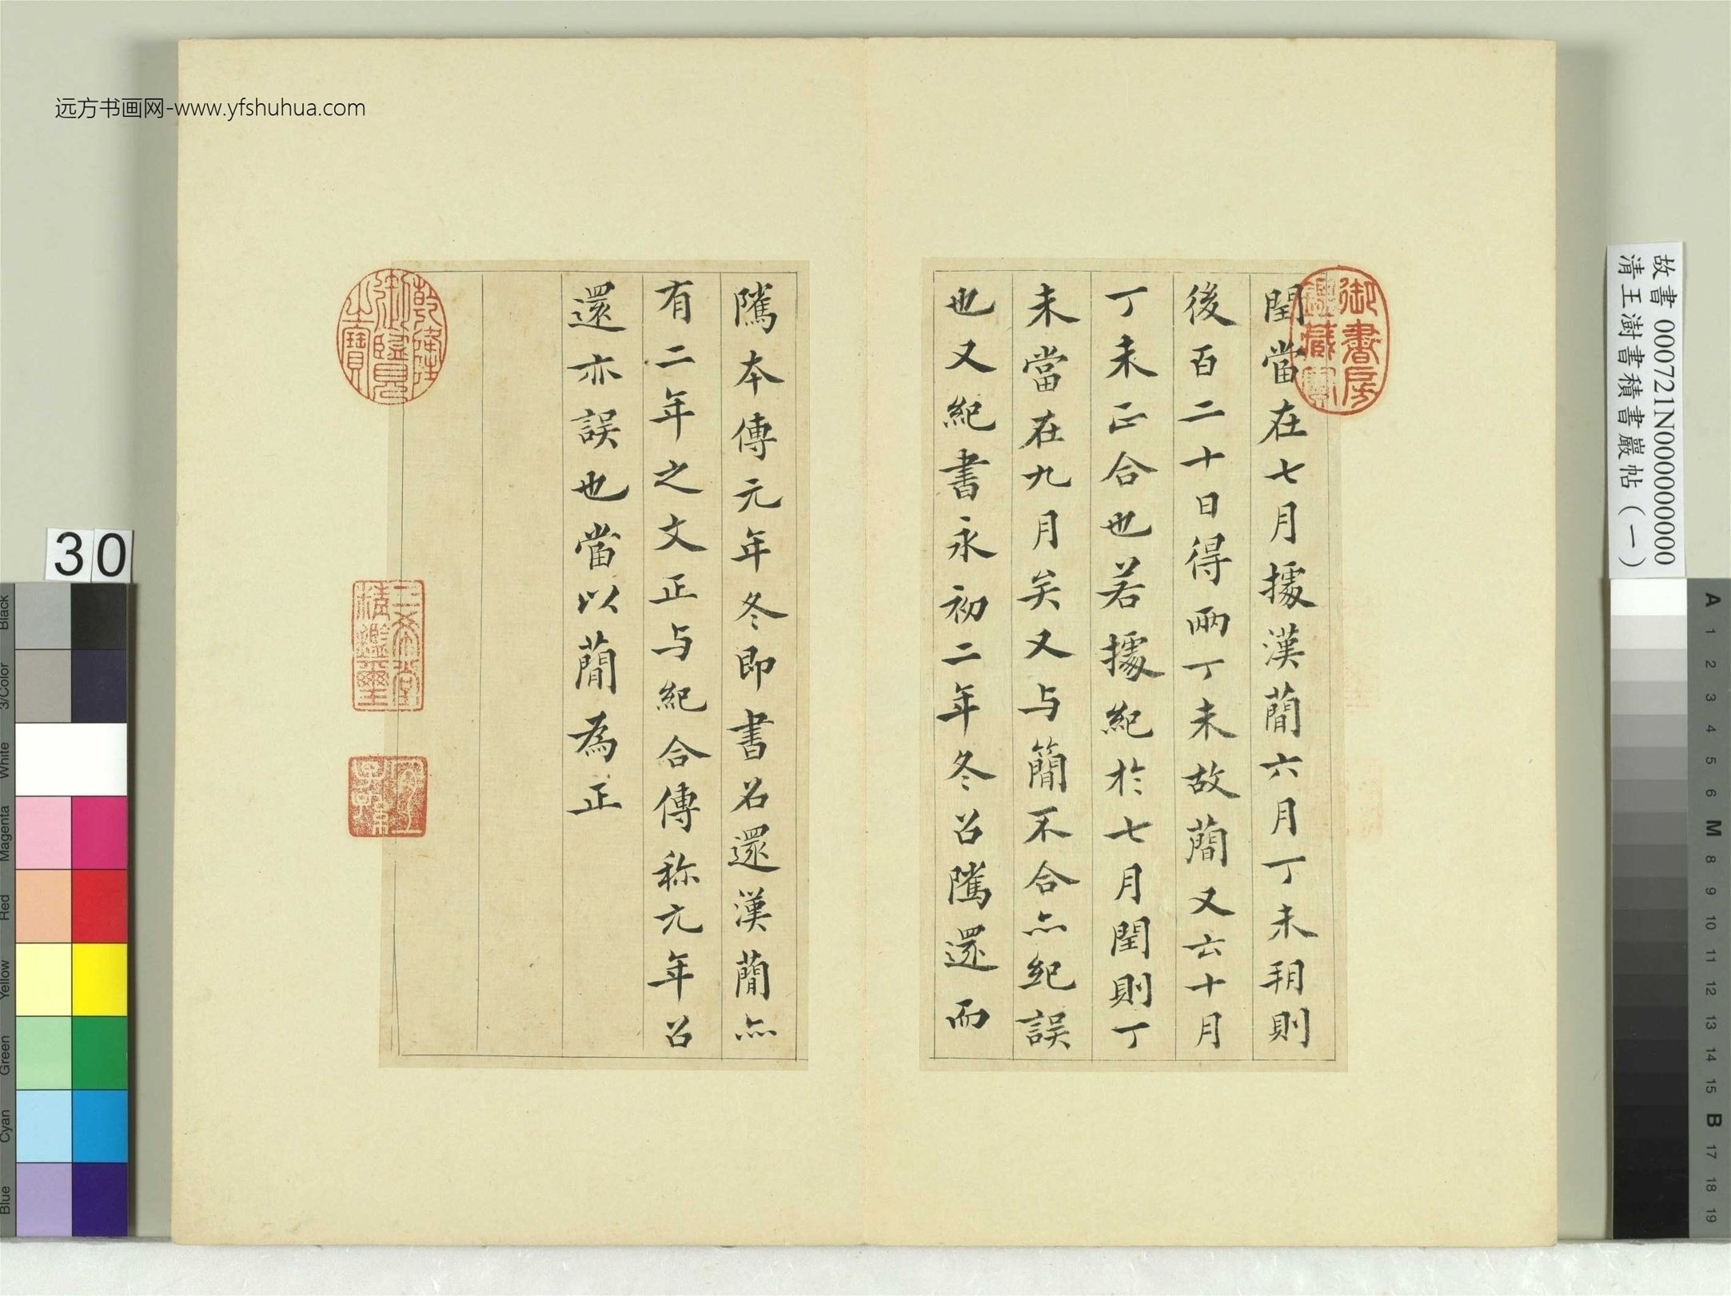 远方书画网-www.yfshuhua.com
閏當在七月據漢蕳六月丁未朔則
後百二十日得兩丁未故蕳又云十月
丁未正合也若據紀於七月閏則丁
未當在九月矣又与簡不合亦紀誤
也又紀書永初二年冬召隲還而
隲本傳元年冬即書名還漢蕳亦
有二年之文正与紀合傳称元年召
還亦誤也當以蕳為正
御書房鑑藏寶
乾隆御覽之寶
三希堂精鑑璽
宜子孫
故書 000721N000000000
清王澍書積書巖帖(一)
30
Black
3/Color
White
Magenta
Red
Yellow
Green
Cyan
Blue
A
1
2
3
4
5
6
M
8
9
10
11
12
13
14
15
B
17
18
19